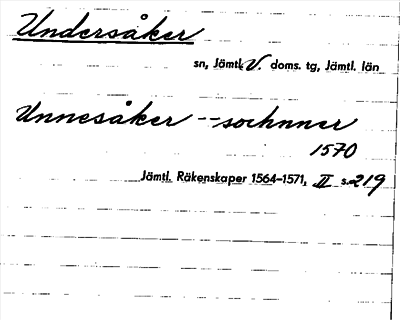 Undersåker
sn, Jämtl. V. doms. tg, Jämtl. län
Unnesåker -- sochnner
1570
Jämtl. Räkenskaper 1564–1571, II s. 219